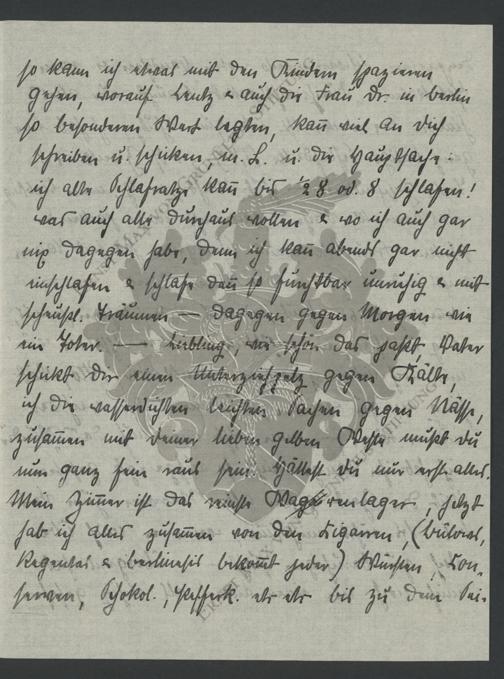 so kann ich etwas mit den Kindern spazieren
gehen, worauf Lentz & auch die Frau Dr. in Berlin
so besonderen Wert legten, kañ viel an Dich
schreiben u. schicken, m. L. u. die Hauptsache:
ich alte Schlafratze kañ bis ½ 8 od. 8 schlafen!
was auch alle durchaus wollen & wo ich auch gar
nix dagegen habe, denn ich kañ abends gar nicht
einschlafen & schlafe dañ so furchtbar unruhig & mit
scheusl. Träumen — dagegen gegen Morgen wie
ein Toter. — Liebling, wie schön das passt Vater
schickt Dir einen Unterziehpelz gegen Kälte,
ich die wasserdichten leichten Sachen gegen Nässe,
zusam̃en mit deiner lieben gelben Weste mußt du
nun ganz fein raus sein. Hättest du nur erst alles.
Mein Zim̃er ist das reinste Warenlager, jetzt
hab ich alles zusam̃en von den Zigarren (Bülows,
Regentas & Berlinesis bekom̃t jeder) Würsten, Kon-
serven, Schokol., Pfefferk. etc etc bis zu dem